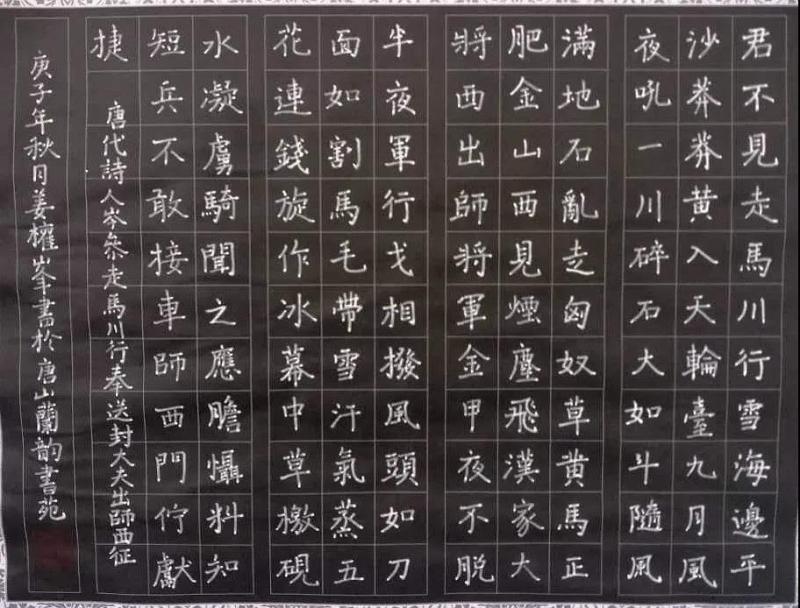 君不見走馬川行雪海邊平
沙莽莽黃入天輪臺九月風
夜吼一川碎石大如斗隨風
滿地石亂走匈奴草黃馬正
肥金山西見煙塵飛漢家大
將西出師將軍金甲夜不脱
半夜軍行戈相撥風頭如刀
面如割馬毛帶雪汗氣蒸五
花連錢旋作冰幕中草檄硯
水凝虜騎聞之應膽懾料知
短兵不敢接車師西門佇獻
捷
唐代詩人岑參走馬川行奉送封大夫出師西征
庚子年秋月姜權峯書於唐山蘭韵書苑